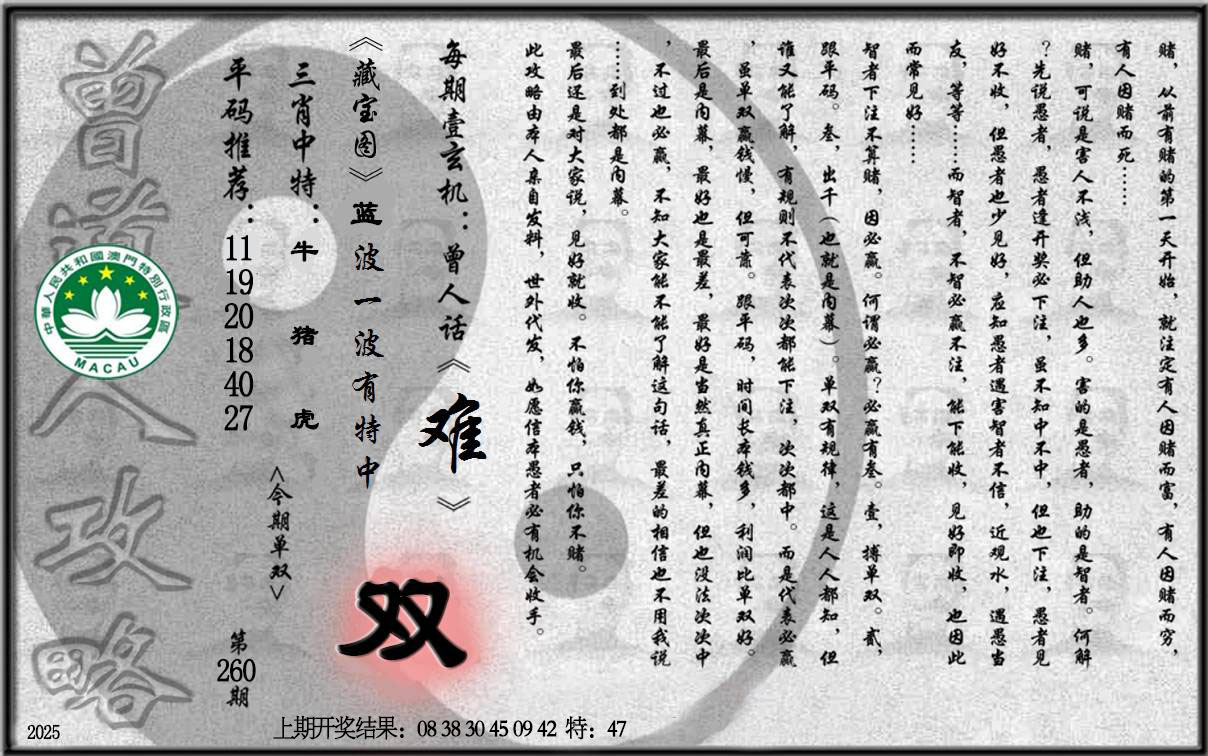 赌，从前有赌的第一天开始，就注定有人因赌而富，有人因赌而穷，
有人因赌而死……
赌，可说是害人不浅，但助人也多。害的是愚者，助的是智者。何解
？先说愚者，愚者逢开奖必下注，虽不知中不中，但也下注，愚者见
好不收，但愚者也少见好，应知愚者遇害智者不信，近观水，遇愚当
友，等等……而智者，不智必赢不注，能下能收，见好即收，也因此
而常见好……
智者下注不算赌，因必赢。何谓必赢？必赢有叁。壹，搏单双。贰，
跟平码。叁，出千（也就是内幕）。单双有规律，这是人人都知，但
谁又能了解，有规则不代表次次都能下注，次次都中。而是代表必赢
，虽单双赢钱慢，但可靠。跟平码，时间长本钱多，利润比单双好。
最后是内幕，最好也是最差，最好是当然真正内幕，但也没法次次中
，不过也必赢，不知大家能不能了解这句话，最差的相信也不用我说
……到处都是内幕。
最后还是对大家说，见好就收。不怕你赢钱，只怕你不赌。
此攻略由本人亲自发料，世外代发，如愿信本愚者必有机会收手。
每期壹玄机：曾人话《难》
《藏宝图》蓝波一波有特中
双
三肖中特：牛 猪 虎
<今期单双>
平码推荐：11 19 20 18 40 27
第260期
曾道人攻略
中華人民共和國澳門特別行政區
MACAU
2025
上期开奖结果：08 38 30 45 09 42 特：47